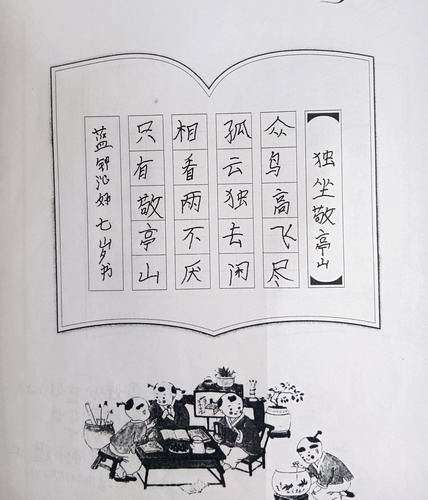 独坐敬亭山
众鸟高飞尽
孤云独去闲
相看两不厌
只有敬亭山
蓝 沁妍 七岁书